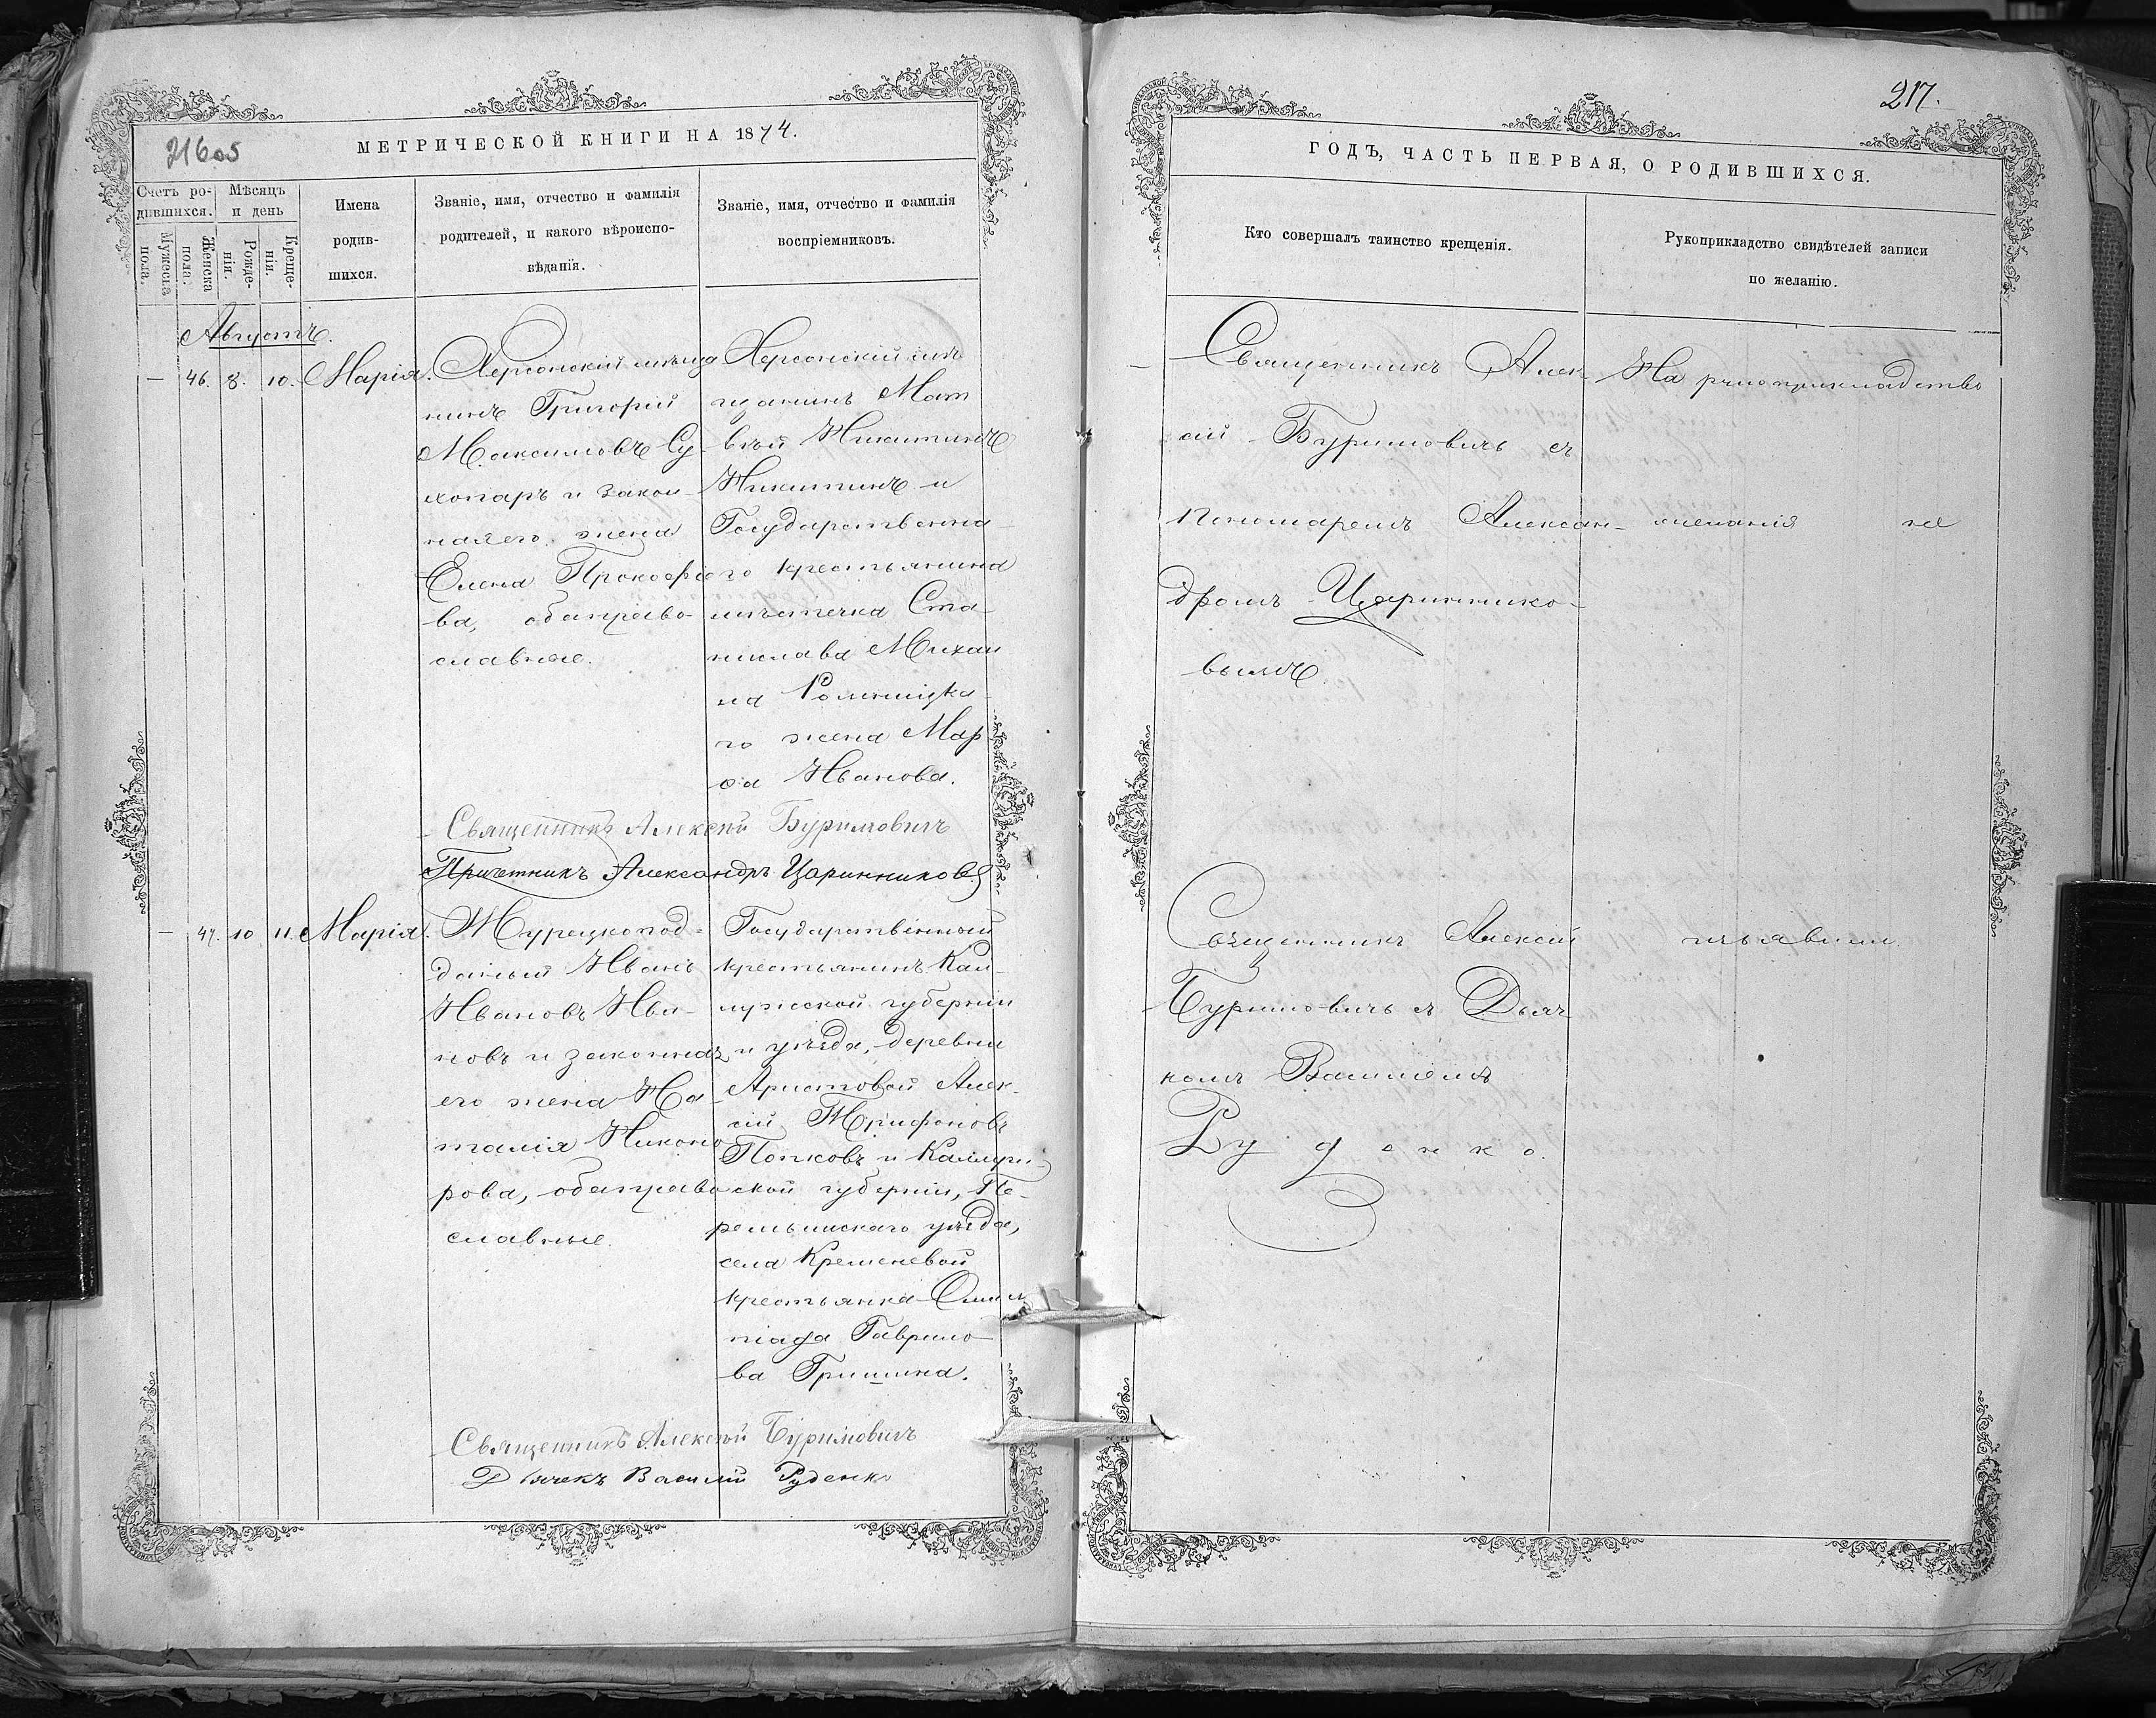 21605
МЕТРИЧЕСКОЙ КНИГИ НА 1874.
Счетъ ро-
дившихся.
Мѣсяцъ
и день
Мужеска
пола.
Женска
пола.
Рожде-
нія.
Креще-
нія.
Имена
родив-
шихся.
Званіе, имя, отчество и фамилія
родителей, и какого вѣроиспо-
вѣданія.
Званіе, имя, отчество и фамилія
воспріемниковъ.
Августъ.
— 46. 8. 10. Марія.
Херсонскій мѣща
нинъ Григорій
Максимовъ Су-
хопаръ и закон-
ная его жена
Елена Прокофіе
ва, оба право-
славные.
Херсонскій мѣ
щанинъ Мат
вѣй Никитинъ
Никитинъ и
Государственна-
го крестьянина
мѣстечка Ста-
нислава Михаи
ла
го жена Мар
ѳа Иванова.
Священникъ Алексѣй Буримовичъ
Причетникъ Александръ Царинниковъ
— 47. 10 11. Марія.
Турецкопод-
даный Иванъ
Ивановъ Ива-
новъ и законная
его жена На-
талія Никоно
рова, оба право
славные.
Государственный
крестьянинъ Кал-
лужской губерніи
и уѣзда, деревни
Аристовой Алек-
сій Трифоновъ
Попковъ и Каллуж-
ской губерніи, Пе-
ремышскаго уѣзда,
села Кременевой
крестьянка Олим
піада Гаврило-
ва Гришина.
Священникъ Алексѣй Буримовичъ
Дьячекъ Василій Руденко
217.
ГОДЪ, ЧАСТЬ ПЕРВАЯ, О РОДИВШИХСЯ.
Кто совершалъ таинство крещенія.
Рукоприкладство свидѣтелей записи
по желанію.
Священникъ Алек-
сій Буримовичъ съ
пономаремъ Алексан-
дромъ Царинико-
вымъ.
На рукоприкладство
желанія не
Священникъ Алексій
Буримовичъ съ Дьяч
комъ Василіемъ
Руденко.
изъявили.